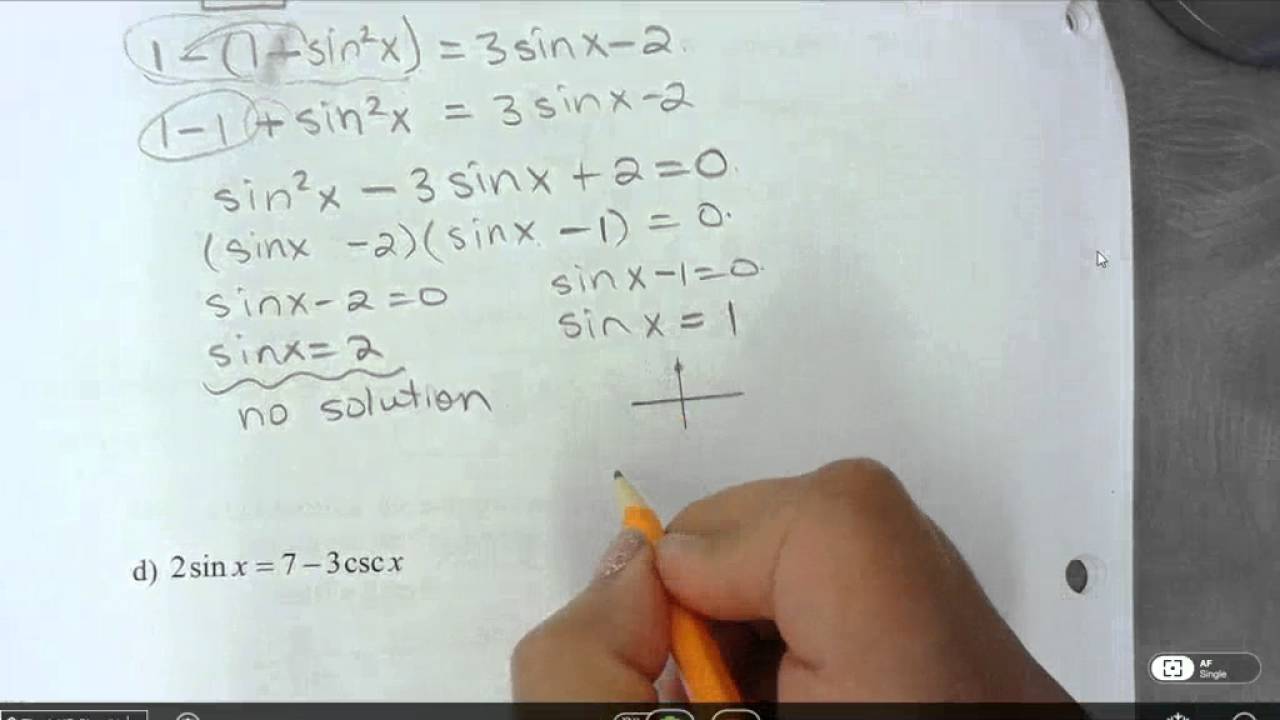 1-(1-sin²x) = 3sinx-2
1-1+sin²x = 3sinx-2
sin²x - 3sinx + 2 = 0
(sinx -2)(sinx -1) = 0
sinx-2=0 sinx-1=0
sinx=2 sinx=1
no solution
d) 2sinx=7-3cscx
AF
Single